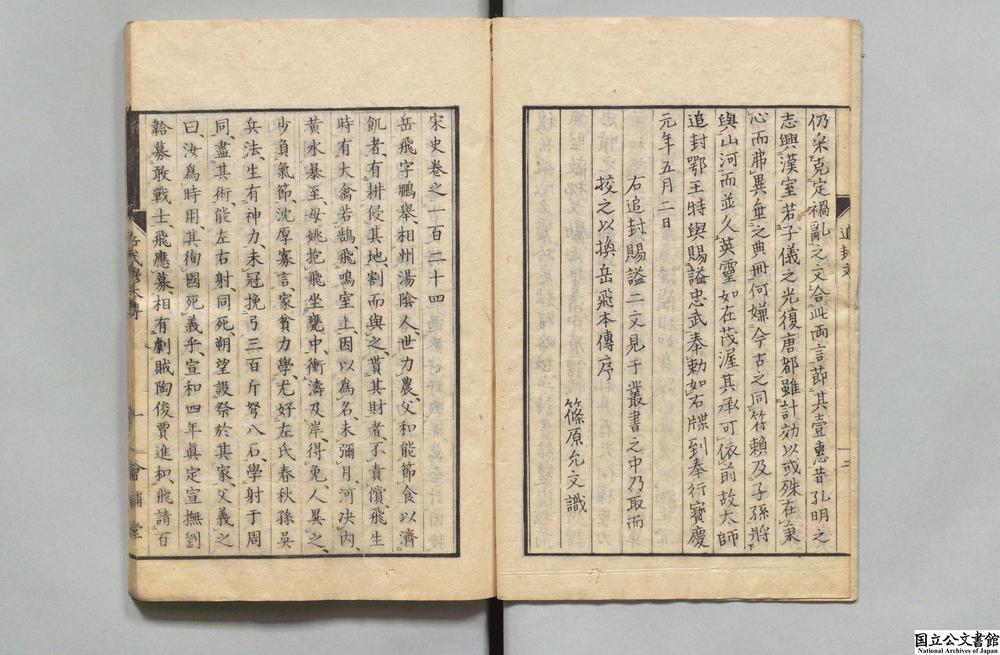 仍采克定禍亂之文合此兩言節其壹惠昔孔明之
志興漢室若子儀之光復唐都雖計効以或殊在秉
心而弗異垂之典冊何嫌今古之同符賴及子孫將
與山河而並久英靈如在茂渥其承可依前故太師
追封鄂王特與賜謚忠武奉勅如右牒到奉行寶慶
元年五月二日
右追封賜謚二文見于叢書之中乃取而
挍之以換岳飛本傳序
篠原允文識
宋史卷之一百二十四
岳飛字鵬舉相州湯陰人世力農父和能節食以濟
飢者有耕侵其地割而與之貰其財者不責償飛生
時有大禽若鵠飛鳴室上因以為名未彌月河決内
黄水暴至母姚抱飛坐甕中衝濤及岸得免人異之
少負氣節沈厚寡言家貧力學尤好左氏春秋孫吳
兵法生有神力未冠挽弓三百斤弩八石學射于周
同盡其術能左右射同死朔望設祭於其家父義之
曰汝為時用其徇國死義乎宣和四年真定宣撫劉
韐募敢戰士飛應募相有劇賊陶俊賈進和飛請百
国立公文書館
National Archives of Japan